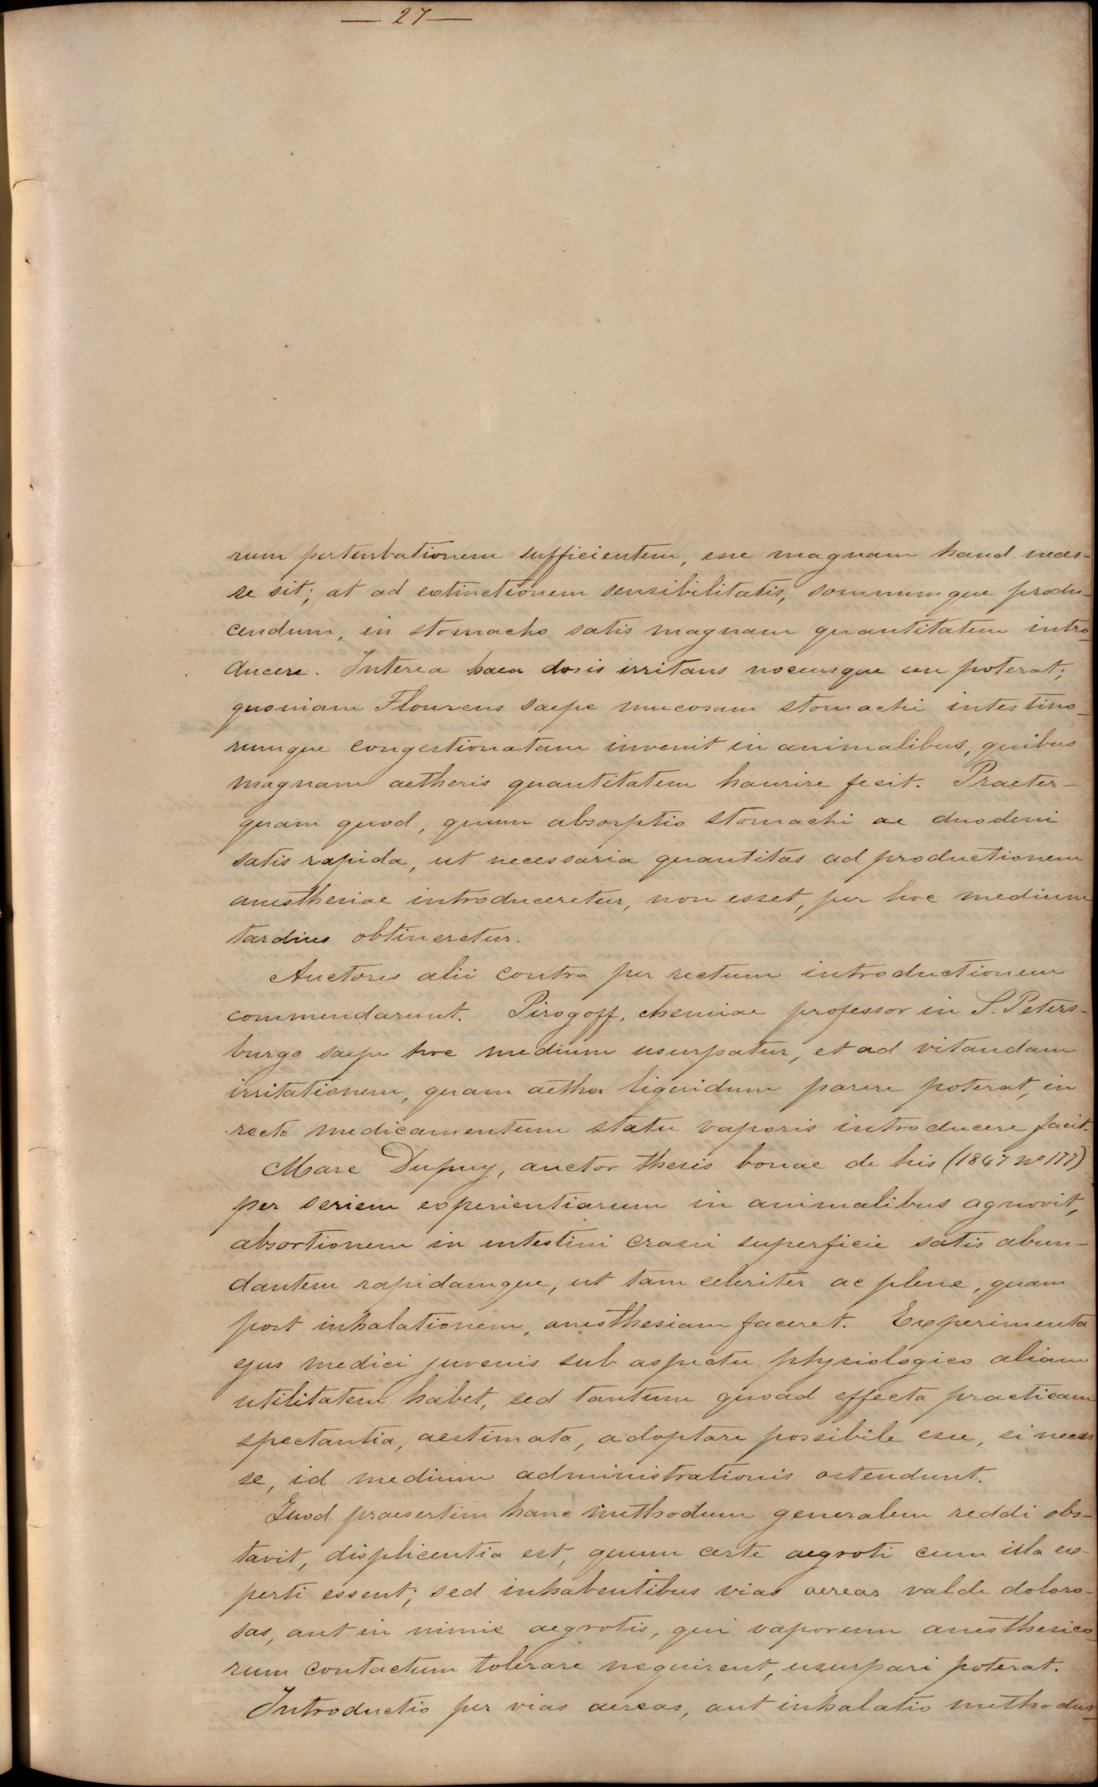 — 27 —
rum perturbationem sufficientem, esse magnam haud neces-
se sit; at ad extinctionem sensibilitatis, somnumque produ-
cendum, in stomacho satis magnam quantitatem intro-
ducere. Interea haec dosis irritans nocensque esse poterat;
quoniam Flourens saepe mucosam stomachi intestino-
rumque congestionatam invenit in animalibus, quibus
magnam aetheris quantitatem haurire fecit. Praeter-
quam quod, quum absorptio stomachi ac duodeni
satis rapida, ut necessaria quantitas ad productionem
anestheriae introduceretur, non esset, per hoc medium
tardius obtineretur.
Auctores alii contra per rectum introductionem
commendarunt. Pirogoff, chemiae professor in S. Peters-
burgo saepe hoc medium usurpatur, et ad vitandam
irritationem, quam aether liquidum parere poterat, in
recto medicamentum statu vaporis introducere facit.
Marc Dupuy, auctor thesis bonae de his (1847 nº 177)
per seriem experientiarum in animalibus agnovit,
absortionem in intestini crassi superficie satis abun-
dantem rapidamque, ut tam celeriter ac plene, quam
post inhalationem, anesthesiam faceret. Experimenta
ejus medici juvenis sub aspectu physiologico aliam
utilitatem habet, sed tantum quoad effecta practicam
spectantia, aestimata, adoptare possibile esse, si neces
se, id medium administrationis ostendunt.
Quod praesertim hanc methodum generalem reddi obs-
tavit, displicentia est, quum certe aegroti cum illa ex-
perti essent; sed inhabentibus vias aereas valde doloro-
sas, aut in nimis aegrotis, qui vaporum anesthesico-
rum contactum tolerare nequirent, usurpari poterat.
Introductio per vias aereas, aut inhalatio methodus